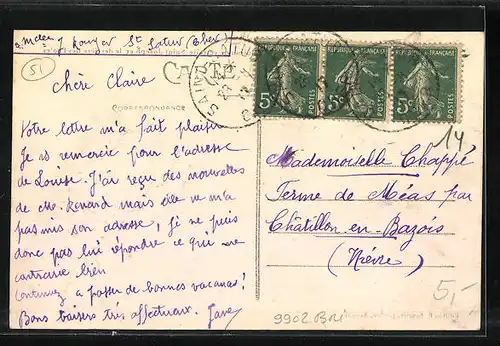 St Satur (Cher)
51
Chère Claire
CORRESPONDANCE
Votre lettre m'a fait plaisir
Je vs remercie pour l'adresse
de Louise. J'ai reçu des nouvelles
de Mo. Renard mais elle ne m'a
pas mis son adresse, je ne puis
donc pas lui répondre ce qui me
contrarie bien
Continuez à passer de bonnes vacances!
Bons baisers très affectueux.
RÉPUBLIQUE FRANÇAISE
5c
POSTES
RÉPUBLIQUE FRANÇAISE
5c
POSTES
RÉPUBLIQUE FRANÇAISE
5c
POSTES
14
Mademoiselle Chappé
Ferme de Méas par
Châtillon-en-Bazois
(Nièvre)
5,-
9902